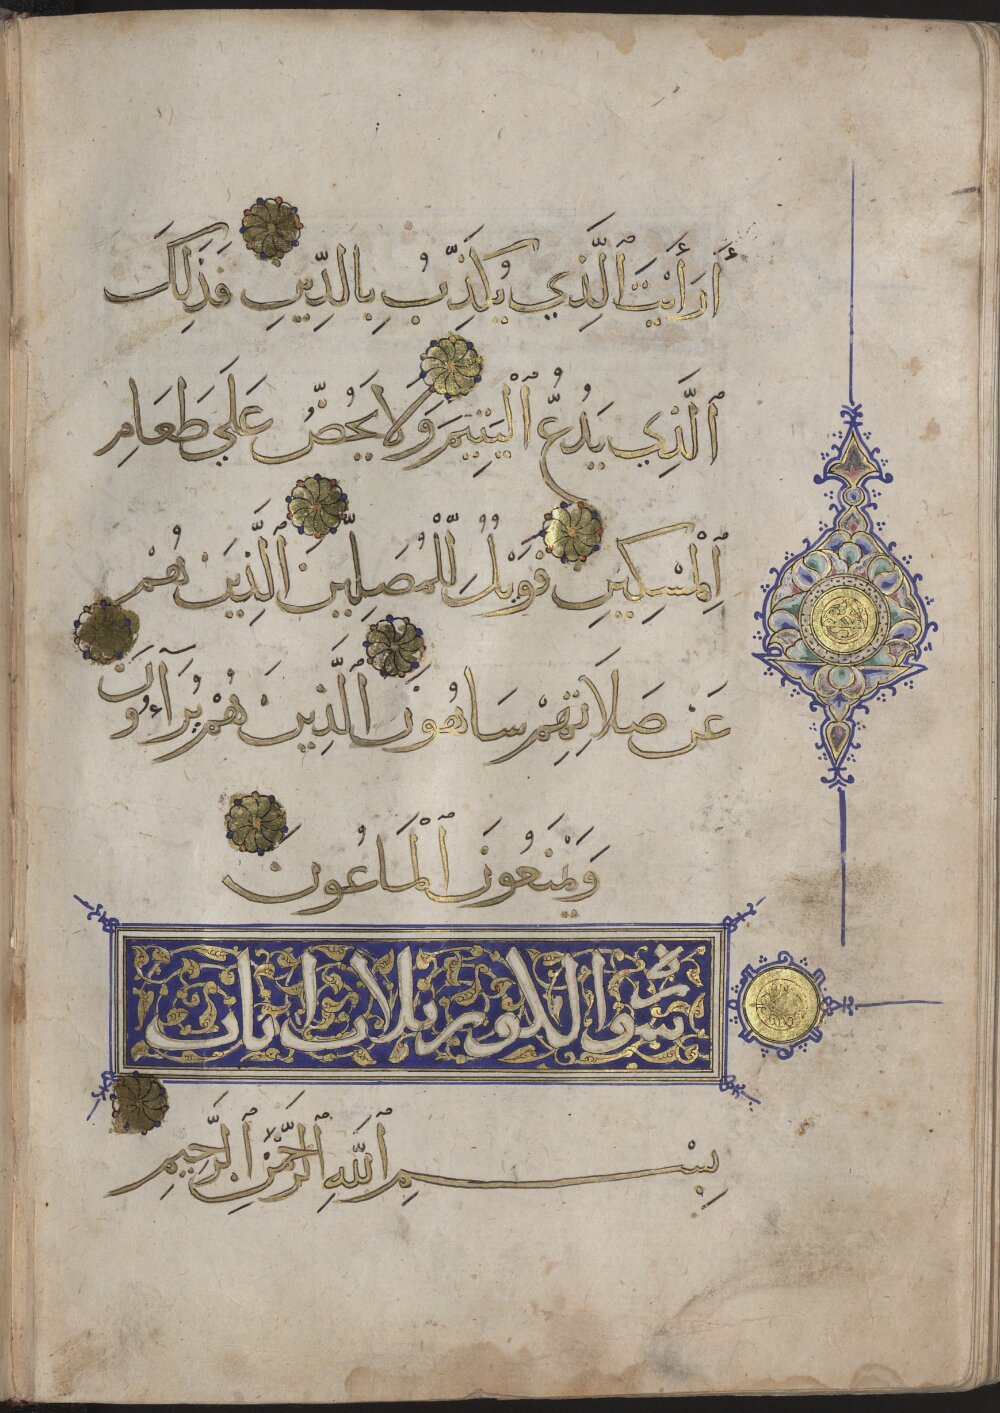 أَرَأَيْتَ ٱلَّذِي يُكَذِّبُ بِالدِّينِ فَذَلِكَ
ٱلَّذِي يَدُعُّ ٱلْيَتِيمَ وَلَا يَحُضُّ عَلَى طَعَامِ
ٱلْمِسْكِينِ فَوَيْلٌ لِّلْمُصَلِّينَ ٱلَّذِينَ هُمْ
عَن صَلَاتِهِمْ سَاهُونَ ٱلَّذِينَ هُمْ يُرَآءُونَ
وَيَمْنَعُونَ ٱلْمَاعُونَ
سورة الكوثر ثلاث ايات
بِسْمِ ٱللَّهِ ٱلرَّحْمَٰنِ ٱلرَّحِيمِ